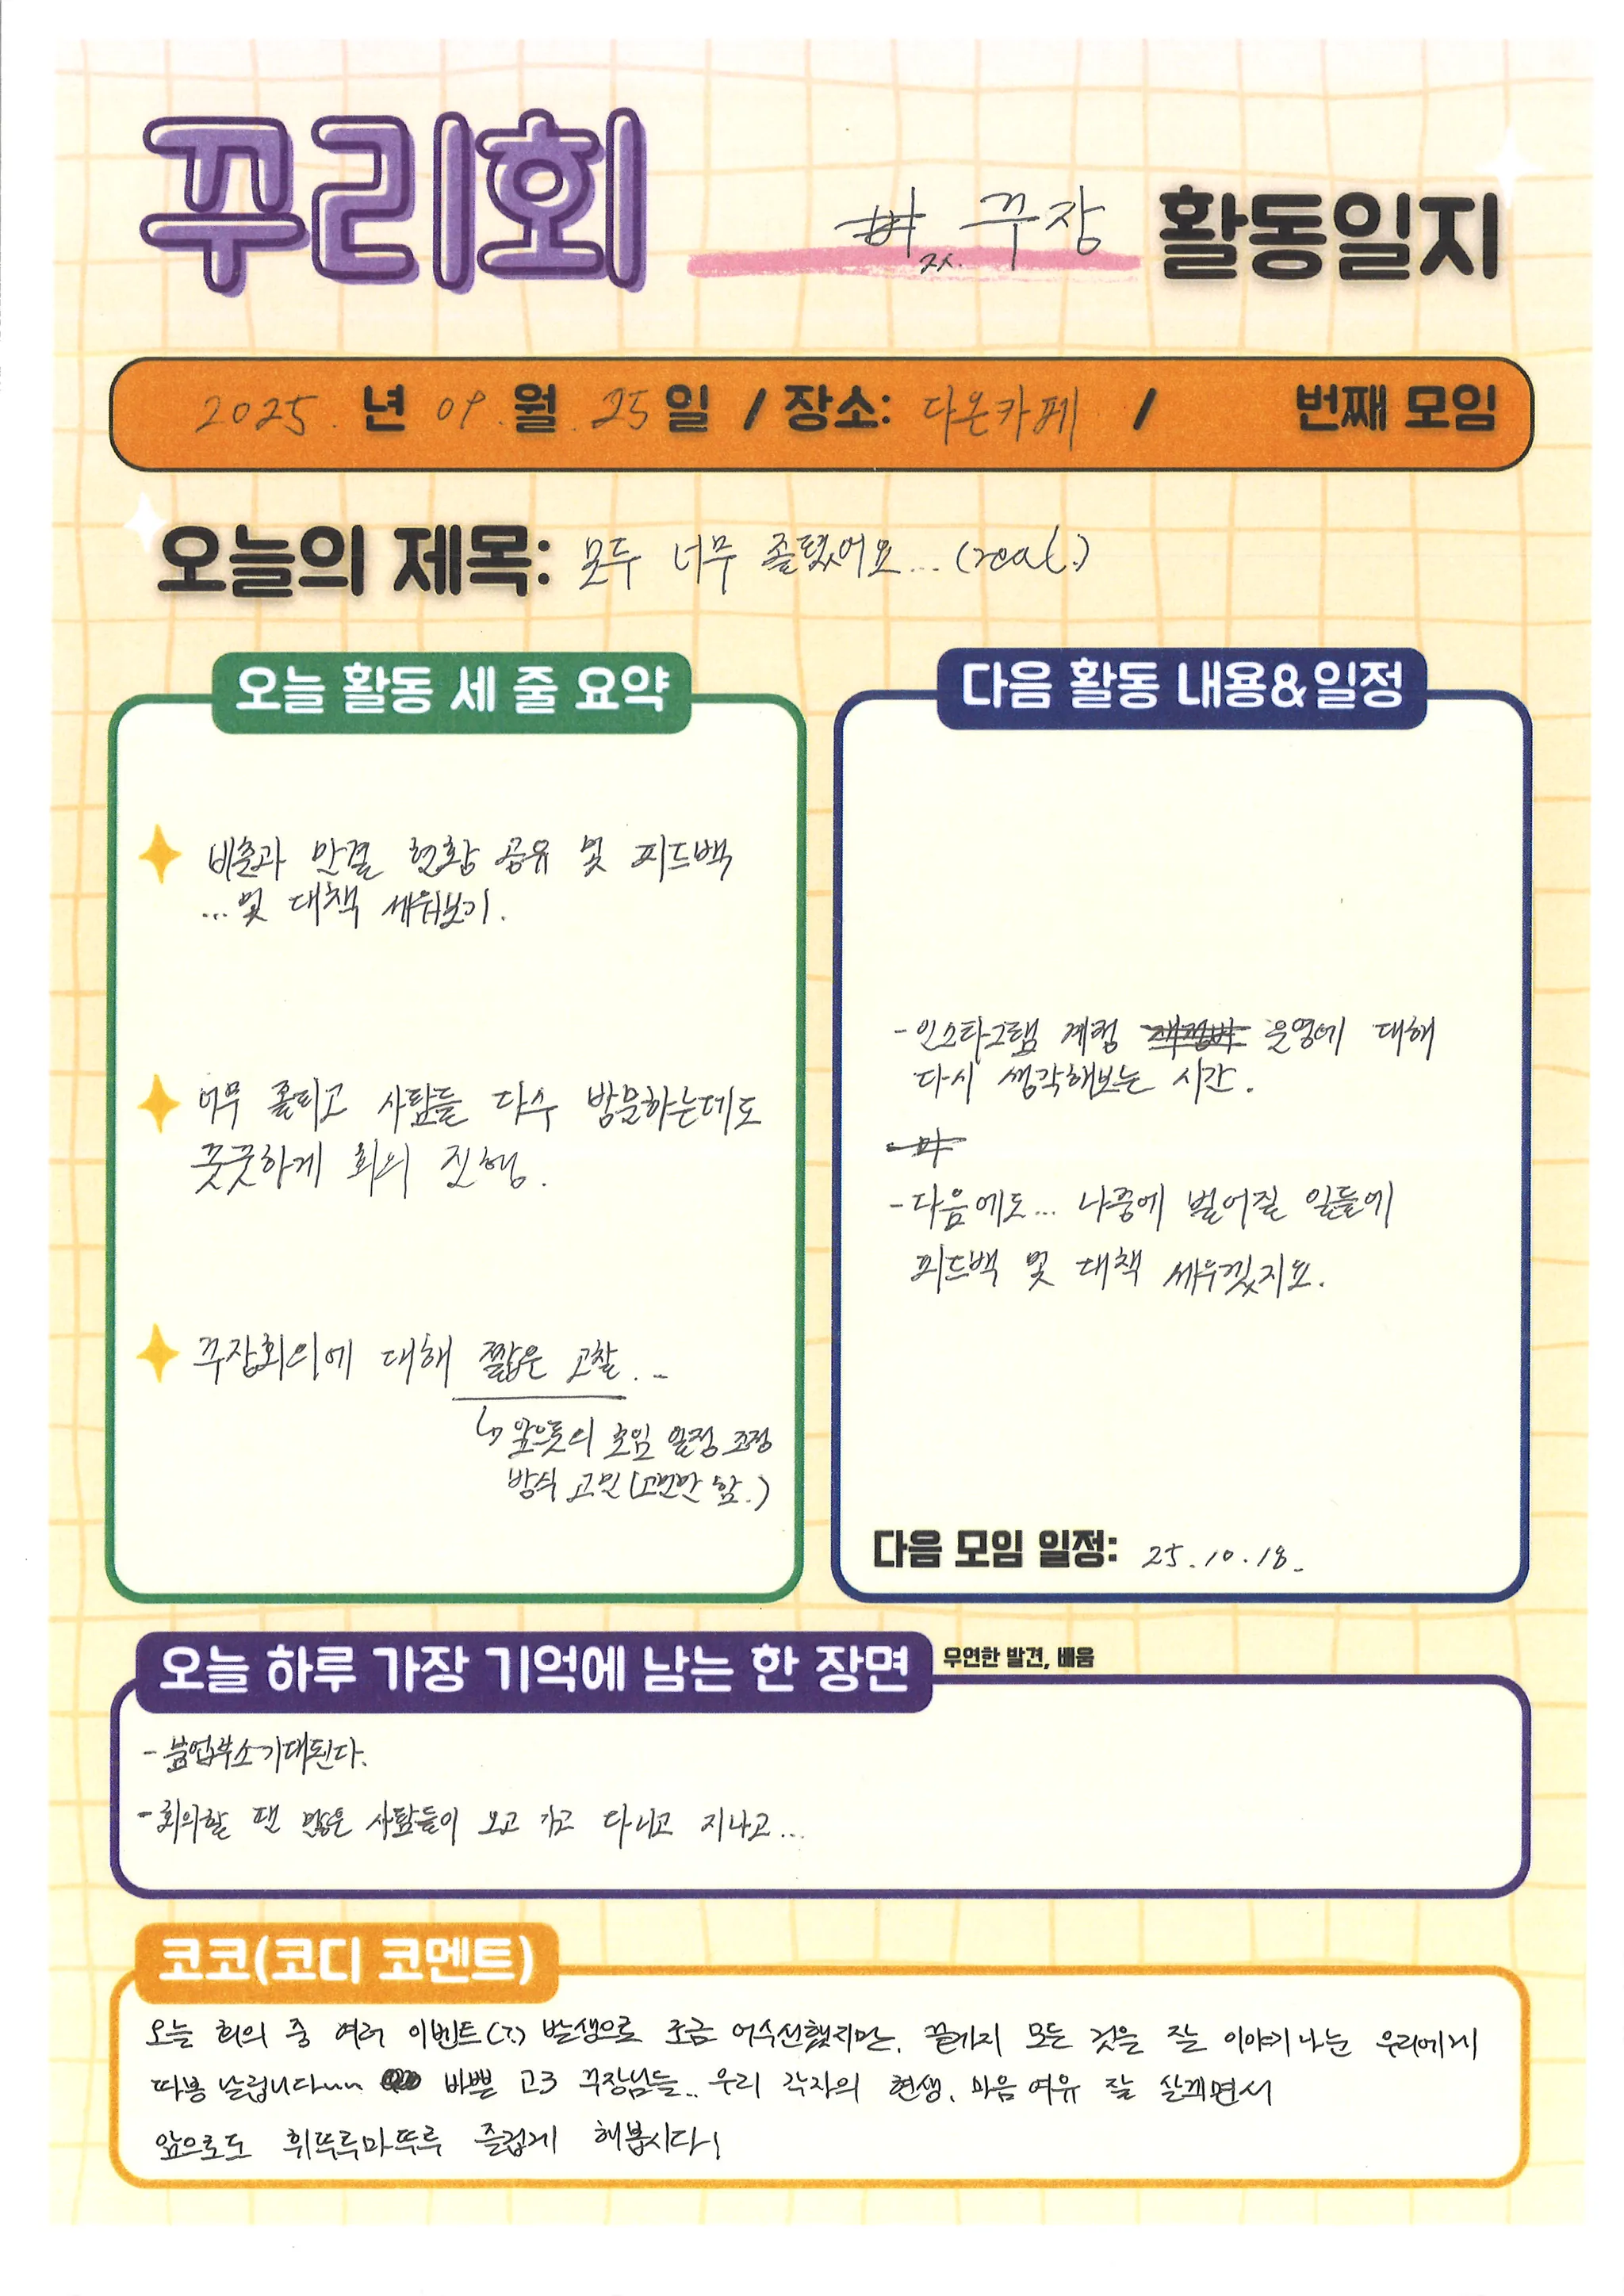 꾸리회
꾸장 활동일지
2025. 년 09. 월 25 일 / 장소: 다온카페 / 번째 모임
오늘의 제목: 모두 너무 졸렸어요... (real.)
오늘 활동 세 줄 요약
비촌과 안결 현황 공유 및 피드백
...및 대책 세워보기.
너무 졸리고 사람들 다수 방문하는데도
꿋꿋하게 회의 진행.
꾸장회의에 대해 짧은 고찰..
↳ 앞으로의 모임 일정 조정
방식 고민(고민만 함.)
다음 활동 내용&일정
- 인스타그램 계정 운영에 대해
다시 생각해보는 시간.
- 다음에도... 나중에 벌어질 일들에
피드백 및 대책 세우겠지요.
다음 모임 일정: 25.10.18.
오늘 하루 가장 기억에 남는 한 장면 우연한 발견, 배움
- 기대된다.
- 회의할 땐 많은 사람들이 오고 가고 다니고 지나고...
코코(코디 코멘트)
오늘 회의 중 여러 이벤트(?) 발생으로 조금 어수선했지만, 끝까지 모든 것을 잘 이야기 나눈 우리에게
따봉 날립니다~~ 바쁠 고3 꾸장님들.. 우리 각자의 현생, 마음 여유 잘 살펴면서
앞으로도 휘뚜루마뚜루 즐겁게 해봅시다!